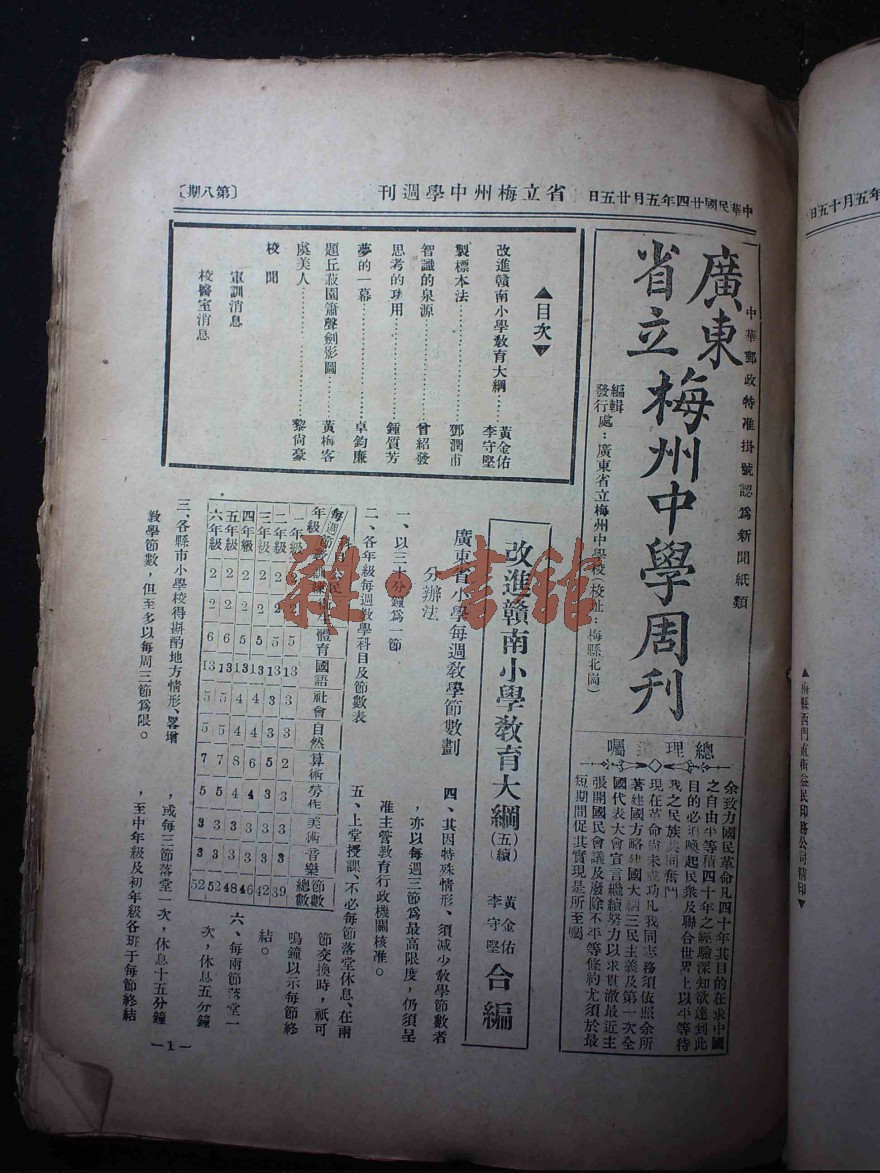 中華民國廿四年五月廿五日
省立梅州中學週刊
〔第八期〕
中華郵政特准掛號認爲新聞紙類
廣東
省立
梅州中學周刊
編輯
發行處：廣東省立梅州中學校（校址：梅縣北崗）
總理遺囑
余致力國民革命凡四十年其目的在求中國
之自由平等積四十年之經驗深知欲達到此
目的必須喚起民衆及聯合世界上以平等待
我之民族共同奮鬥
現在革命尚未成功凡我同志務須依照余所
著建國方略建國大綱三民主義及第一次全
國代表大會宣言繼續努力以求貫澈最近主
張開國民會議及廢除不平等條約尤須於最
短期間促其實現是所至囑
▲目次▼
改進贛南小學教育大綱……黃金佑
李守堅
製標本法……鄧潤市
智識的泉源……曾紹發
思考的功用……鍾質芳
夢的一幕……卓鈞廉
題丘菽園簫聲劍影圖……黃梅客
虞美人……黎尙豪
校聞
軍訓消息
校醫室消息
改進贛南小學教育大綱（五續）
黃金佑
李守堅
合編
廣東省小學每週教學節數劃
分辦法
一、以三十分鐘爲一節
二、各年級每週教學科目及節數表
體育 國語 社會 自然 算術 勞作 美術 音樂 節數總數
一年級
二年級
三年級
四年級
五年級
六年級
三、各縣市小學校得斟酌地方情形、畧增
教學節數，但至多以每周三節爲限。
四、其因特殊情形、須減少教學節數者
，亦以每週三節爲最高限度，仍須呈
准主管教育行政機關核准。
五、上堂授課、不必每節落堂休息、在兩
節交換時，祇可
鳴鐘以示每節終
結。
六、每兩節落堂一
次，休息五分鐘
，或每三節落堂一次，休息十五分鐘
，至中年級及初年級各班于每節終結
—1—
年五月十五日
▲梅縣西門直街益民印務公司精印▼
雜·書館